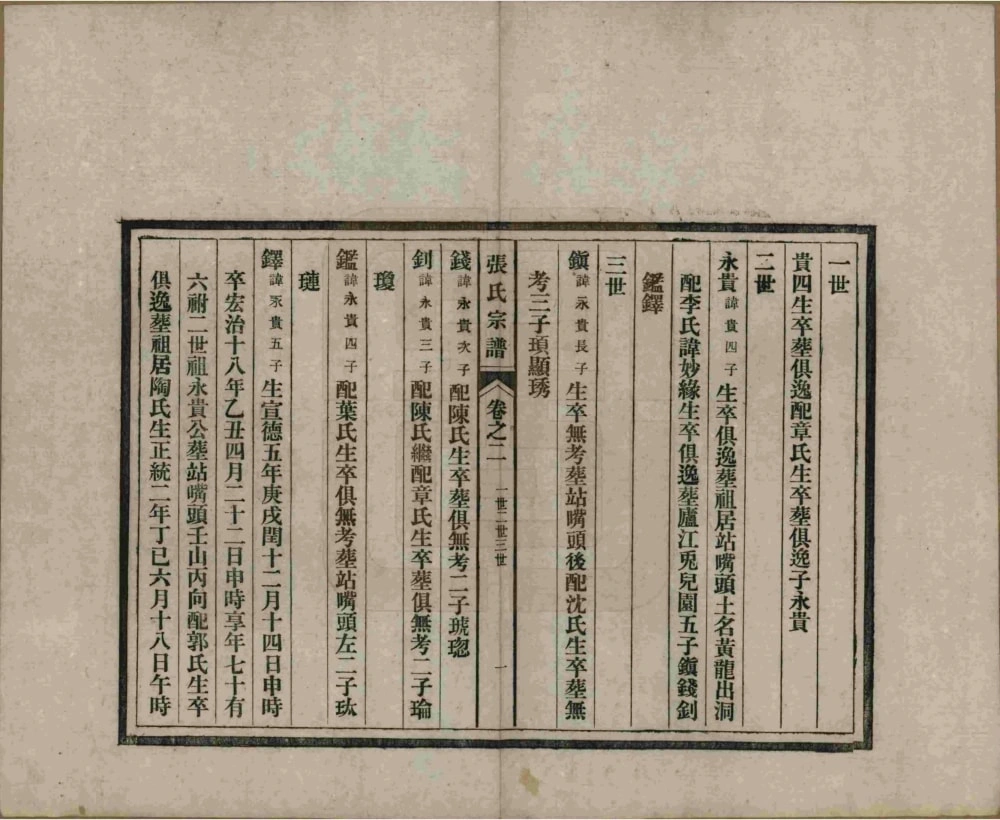 一世
貴四生卒葬俱逸配章氏生卒葬俱逸子永貴
二世
永貴諱貴四子生卒俱逸葬祖居站嘴頭土名黃龍出洞
配李氏諱妙緣生卒俱逸葬廬江兎兒園五子鎭錢釗
鑑鐸
三世
鎭諱永貴長子生卒無考葬站嘴頭後配沈氏生卒葬無
考三子頊顯琇
張氏宗譜
卷之二
一世二世三世
一
錢諱永貴次子配陳氏生卒葬俱無考二子琥璁
釗諱永貴三子配陳氏繼配章氏生卒葬俱無考二子瑜
瓊
鑑諱永貴四子配葉氏生卒俱無考葬站嘴頭左二子玹
璉
鐸諱永貴五子生宣德五年庚戌閏十二月十四日申時
卒宏治十八年乙丑四月二十二日申時享年七十有
六祔二世祖永貴公葬站嘴頭壬山丙向配郭氏生卒
俱逸葬祖居陶氏生正統二年丁巳六月十八日午時